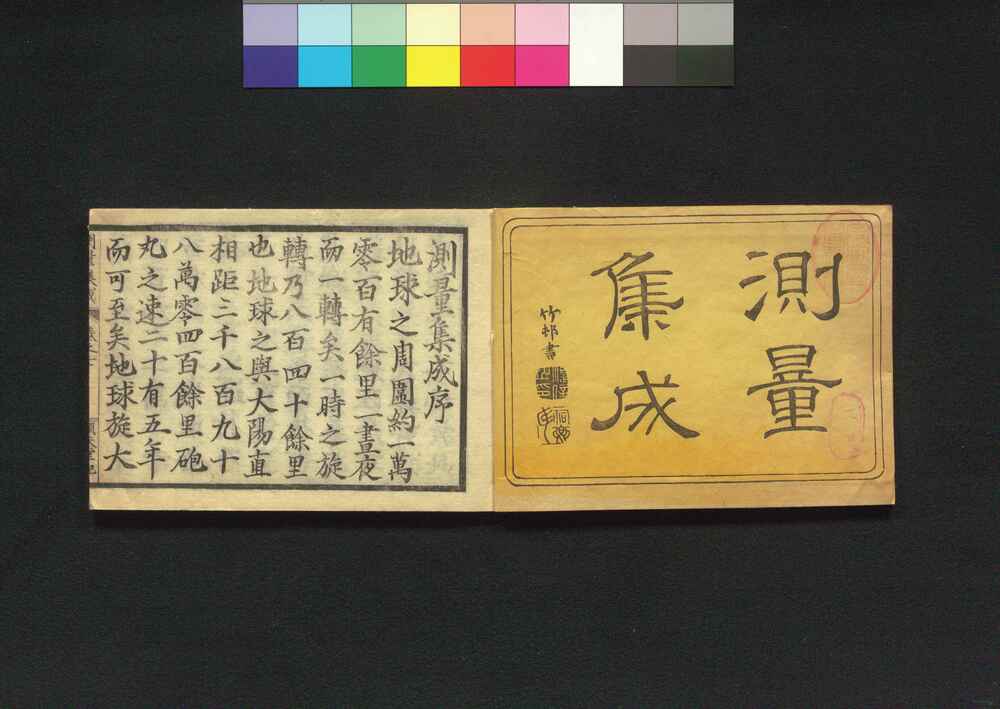 測量
集成
竹邨書
測量集成序
地球之周圍約一萬
零百有餘里一晝夜
而一轉矣一時之旋
轉乃八百四十餘里
也地球之與大陽直
相距三千八百九十
八萬零四百餘里砲
丸之速二十有五年
而可至矣地球旋大